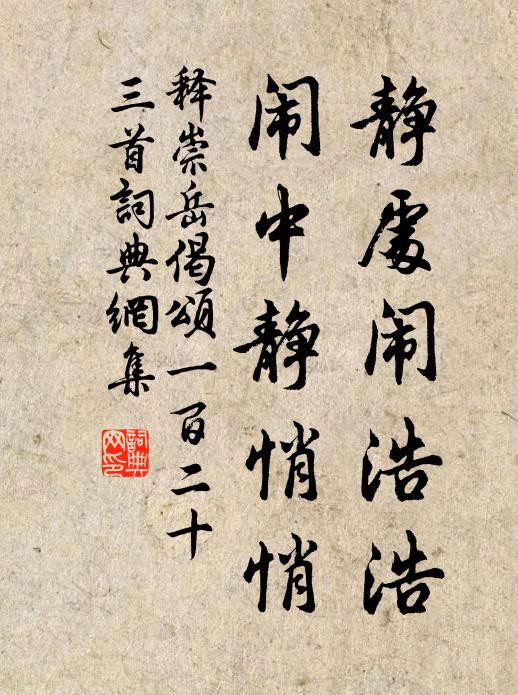 静處闹浩浩
闹中静悄悄
释崇岳偈頌一百二十
三首詞典網集
詞典
网印